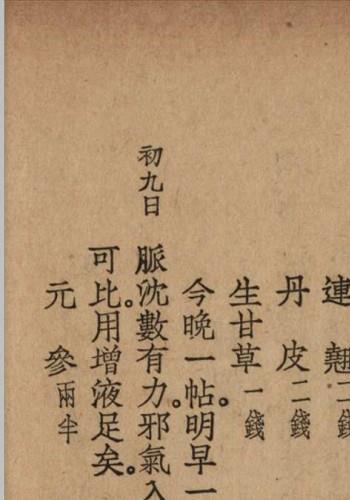 連翹二錢
丹皮二錢
生甘草一錢
今晚一帖。明早一
初九日 脈沈數有力。邪氣入
可比。用增液足矣。
元參兩半